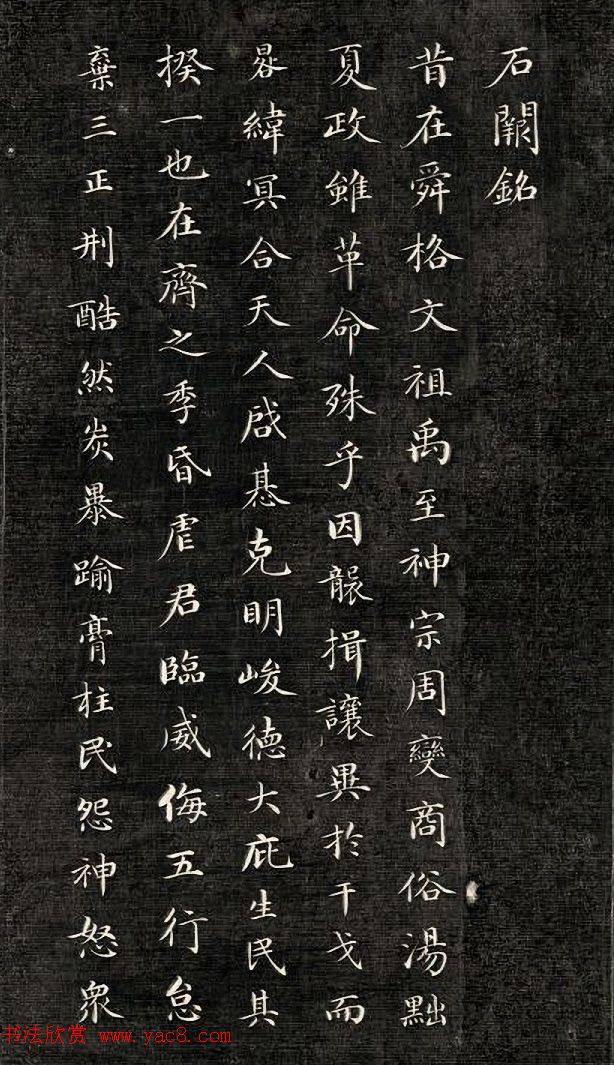 石闕銘
昔在舜格文祖禹至神宗周變商俗湯黜
夏政雖革命殊乎因襲揖讓異於干戈而
晷緯冥合天人啟惎克明峻德大庇生民其
揆一也在齊之季昏虐君臨威侮五行怠
棄三正刑酷然炭暴踰膏柱民怨神怒衆
书法欣赏 www.yac8.com